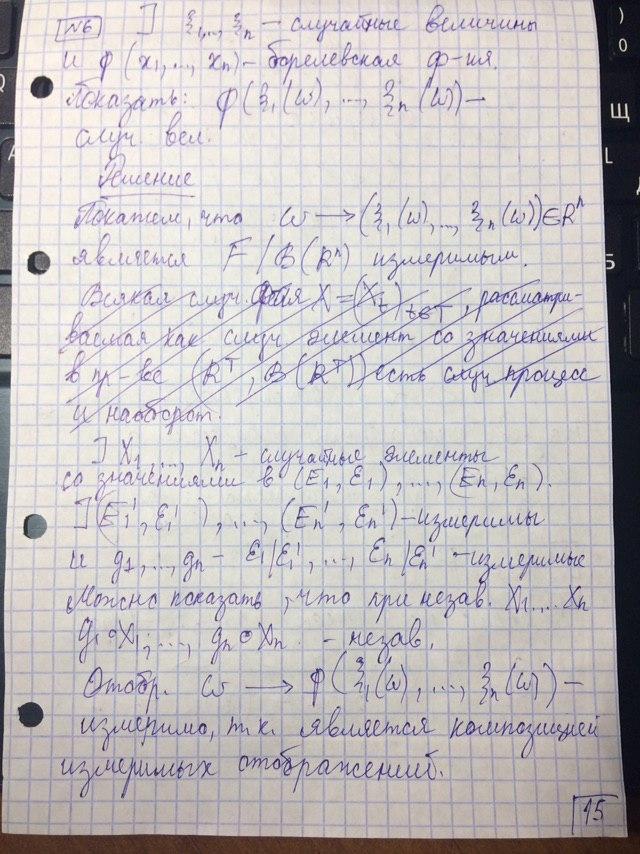 №6 ] ξ₁,..., ξₙ – случайные величины
и φ(x₁,..., xₙ) – борелевская ф-ия.
Показать: φ(ξ₁(ω),..., ξₙ(ω)) –
случ. вел.
Решение
Покажем, что ω → (ξ₁(ω),..., ξₙ(ω)) ∈ Rⁿ
является F/B(Rⁿ) измеримым.
Всякая случ. ф-ия X = (Xₜ)ₜ∈T, рассматри-
ваемая как случ. элемент со значениями
в пр-ве (Rᵀ, B(Rᵀ)) есть случ. процесс
и наоборот.
] X₁,..., Xₙ – случайные элементы
со значениями в (E₁, Ɛ₁),..., (Eₙ, Ɛₙ).
] (E₁', Ɛ₁'),..., (Eₙ', Ɛₙ') – измеримы
и g₁,..., gₙ – Ɛ₁|Ɛ₁',..., Ɛₙ|Ɛₙ' – измеримые
Можно показать, что при незав. X₁,...Xₙ
g₁∘X₁,..., gₙ∘Xₙ – незав.
Отобр. ω → φ(ξ₁(ω),..., ξₙ(ω)) –
измеримо, т.к. является композицией
измеримых отображений.
15
О
Щ
Л